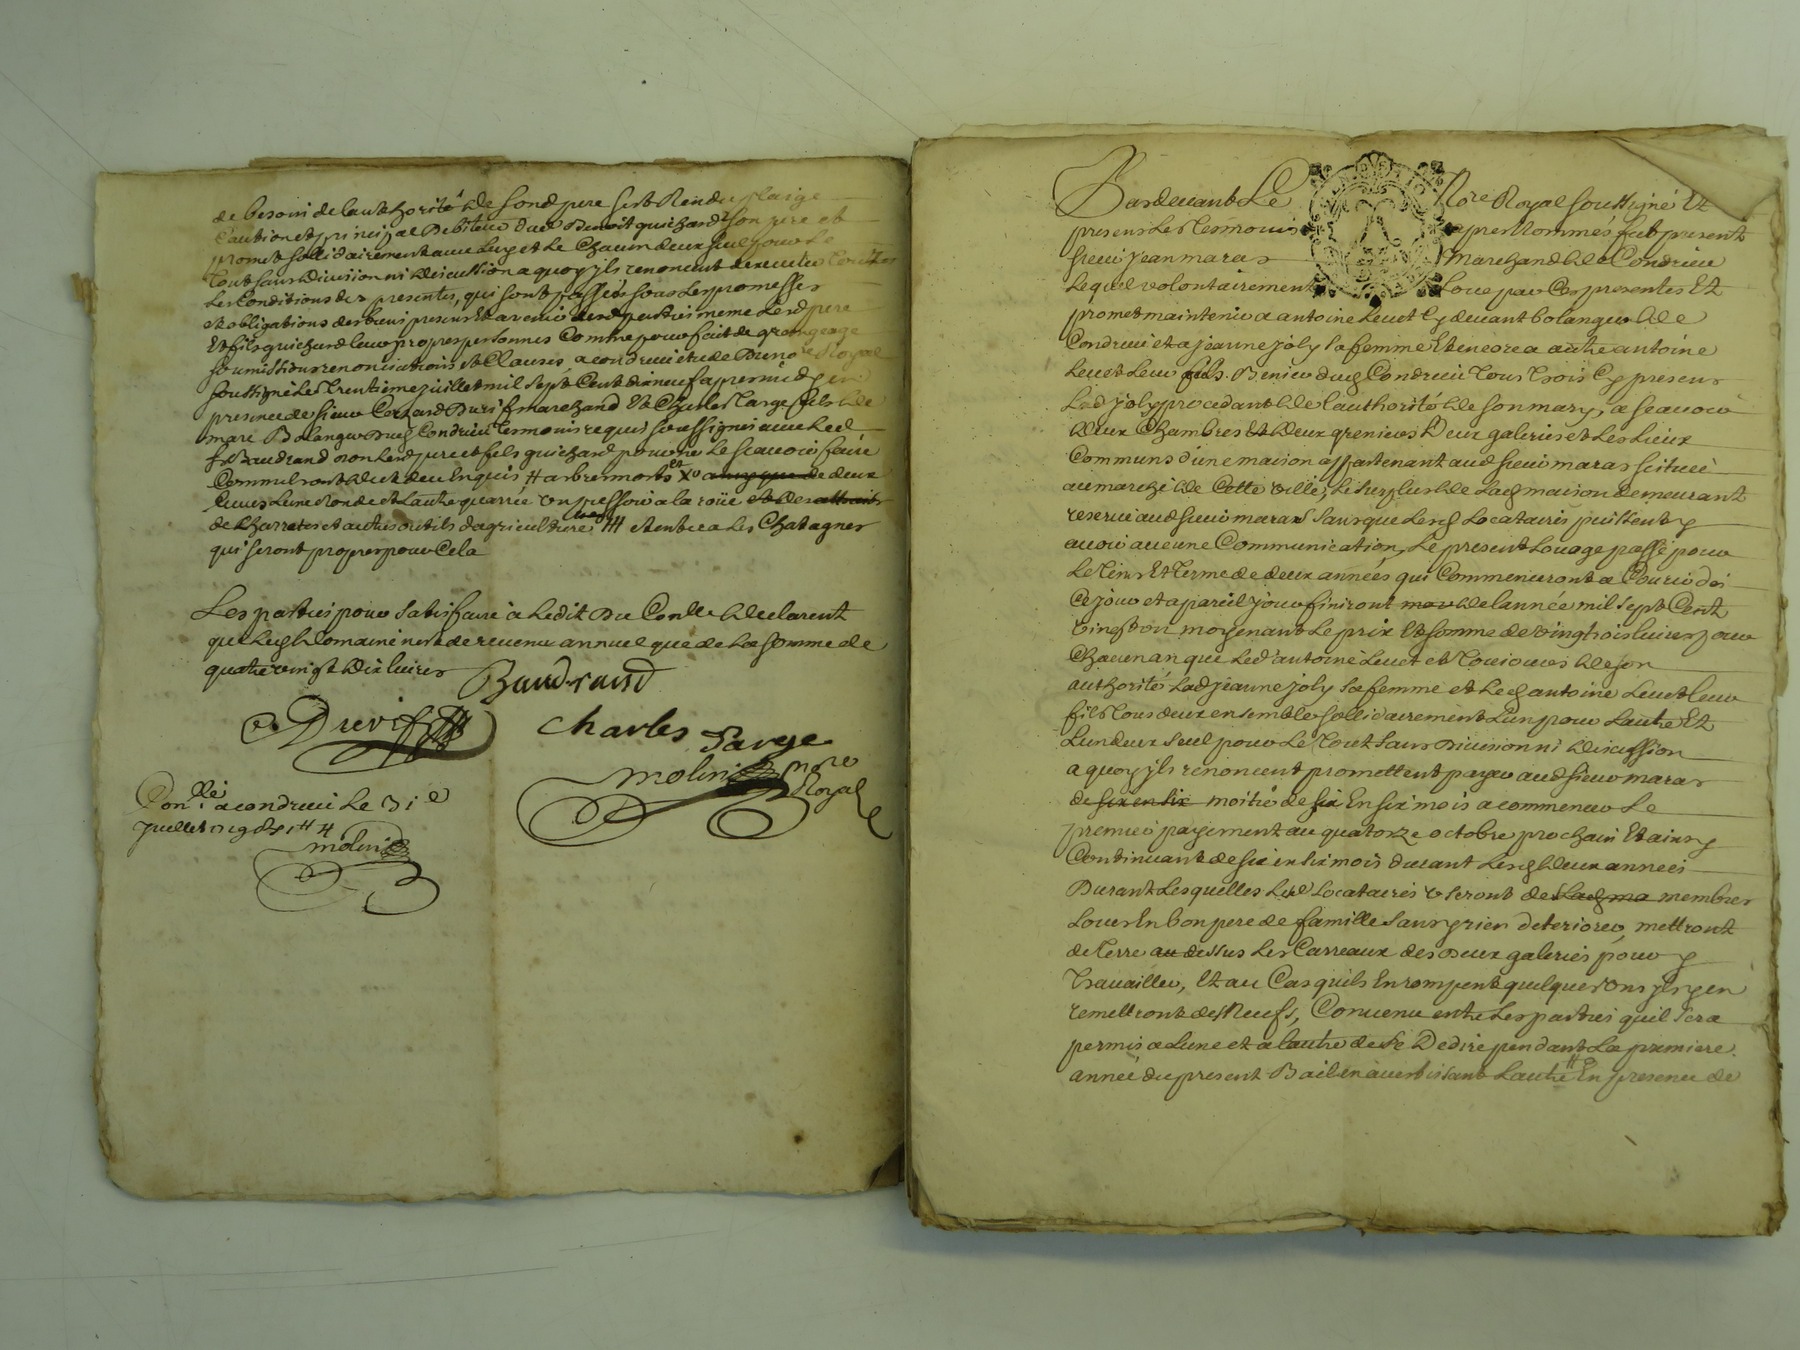 de besoin de lauthorité de sond pere sest Rendu plaige
Caution et principal Debiteur dud Benoit guichard son pere et
promet sollidairement avec luy et Le Chacun deux seul pour Le
Tout sans Division ni discution a quoy ils renoncent dexecuter toutes
Les Conditions des presentes, qui sont passées sous Les promesses
et obligations des biens presens et avenir desd parties meme Lesd pere
Et fils guichard leurs propres personnes Comme pour fait de grangeage
soumissions renonciations et Clauses, a condrieu etude Du no.re Royal
soussigné Le trentieme juillet mil sept Cent dix neuf apres midy en
presence de sieur Durif marchand Et Charles Sarge fils de
marc Bolanger Dud Condrieu Temoins requis soussignés avec Led
sr Baudrand non Lesd pere et fils guichard pour ne Le scavoir faire
Comme ils ont dit de ce Enquis, # arbres morts X et de deux
Cuves Lune Ronde et Lautre quarrée un pressoir a la roüe et des
de Charettes et autres outils dagriculture # et entrera Les Chatagners
qui seront propres pour Cela
Les parties pour satisfaire à Ledit Du Con.lle declarent
que Led domaine nest de revenu annuel que de La somme de
quatre vingt dix livres
Baudrand
Durif
Charles Sarge
molin nore
Royal
Con.llé a condrieu Le 31e
juillet 1719
molin
Pardevant Le No.re Royal soussigné Et
presens Les Temoins apres Nommés fut present
sieur jean maras marchand de Condrieu
Lequel volontairement Loue par Ces presentes Et
promet maintenir a antoine Levet Cy devant bolanger de
Condrieu et a jeanne joly sa femme Et encore a autre antoine
Levet Leur fils. Benier dud Condrieu Tous Trois Cy presens
Lad joly procedant de l'authorité de son mary, a scavoir
deux Chambres Et deux greniers Deux galeries et Les Lieux
Communs d'une maison appartenant aud sieur maras scituée
au marché de Cette ville, Le surplus de Lad maison demeurant
reservé aud sieur maras sans que Lesd Locataires puissent y
avoir aucune Communication, Le present Louage passé pour
Le Tems Et Terme de deux années qui Commenceront a Courir dès
Ce jour et a pareil jour finiront de lannée mil sept Cent
vingt un moyenant Le prix Et somme de vingt trois livres pour
Chacun an que Led antoine Levet et Toujours de son
authorité Lad jeanne joly sa femme et Led antoine Levet leur
fils Tous deux ensemble sollidairement Lun pour Lautre Et
Lun deux seul pour Le Tout sans Division ni discussion
a quoy ils renoncent promettent payer aud sieur maras
de six en six moitié de six En six mois a commencer Le
premier payement au quatorze octobre prochain Et ainsy
Continuant de six en six mois durant Lesd deux années
Durant Lesquelles Lesd Locataires useront des Lad ma membres
Loués En bon pere de famille sans y rien deteriorer, mettront
de Terre au dessus Les Carreaux des Deux galeries pour y
Travailler, Et au Cas quils En rompent quelques uns ils y en
remettront des Neufs, Convenu entre Les parties quil sera
permis a Lune et a lautre de se Dedire pendant La premiere
année du present Bail en avertissant Lautre # En presence de